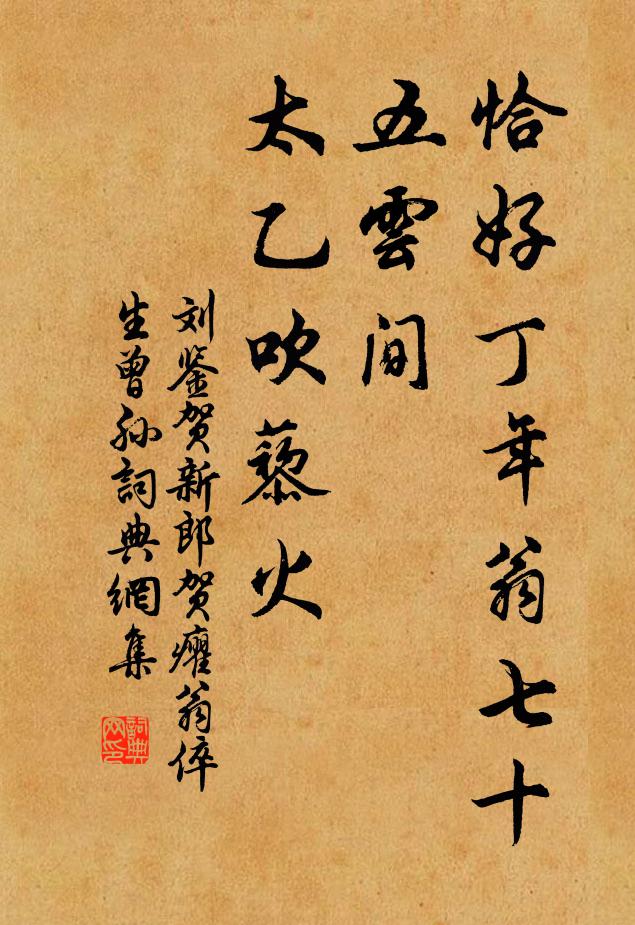 恰好丁年翁七十
五雲間
太乙吹藜火
刘鉴贺新郎贺癯翁倅
生曾孙詞典網集
詞典網印